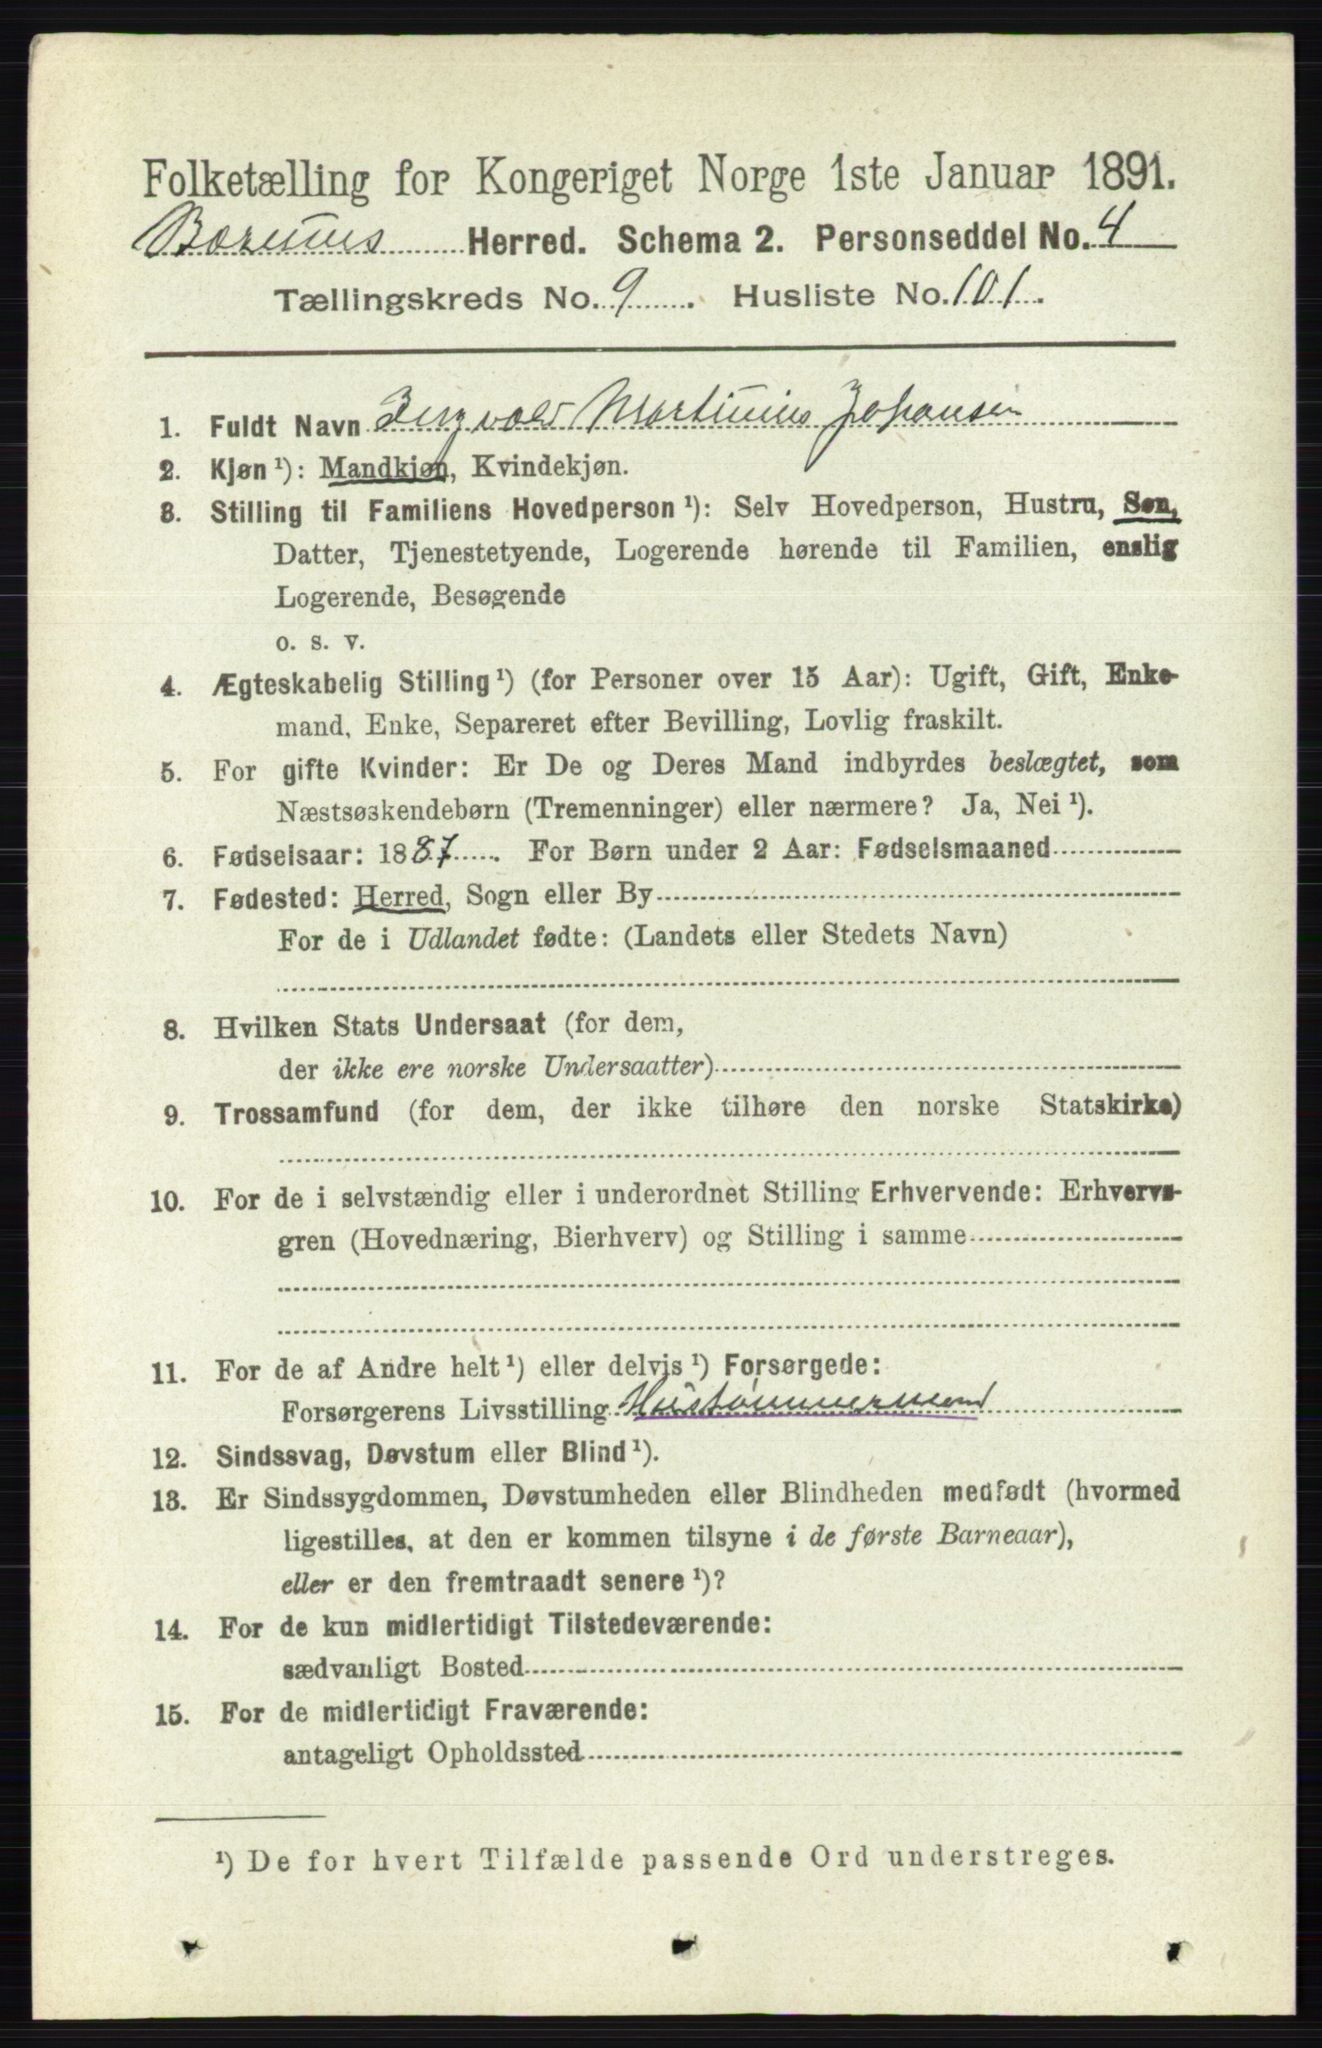 Folketælling for Kongeriget Norge 1ste Januar 1891.
Bærums Herred. Schema 2. Personseddel No. 4
Tællingskreds No. 9. Husliste No. 101.
1. Fuldt Navn Ingvald Martinius Johansen
2. Kjøn ¹): Mandkjøn, Kvindekjøn.
3. Stilling til Familiens Hovedperson ¹): Selv Hovedperson, Hustru, Søn,
Datter, Tjenestetyende, Logerende hørende til Familien, enslig
Logerende, Besøgende
o. s. v.
4. Ægteskabelig Stilling ¹) (for Personer over 15 Aar): Ugift, Gift, Enke-
mand, Enke, Separeret efter Bevilling, Lovlig fraskilt.
5. For gifte Kvinder: Er De og Deres Mand indbyrdes beslægtet, som
Næstsøskendebørn (Tremenninger) eller nærmere? Ja, Nei ¹).
6. Fødselsaar: 1887. For Børn under 2 Aar: Fødselsmaaned
7. Fødested: Herred, Sogn eller By
For de i Udlandet fødte: (Landets eller Stedets Navn)
8. Hvilken Stats Undersaat (for dem,
der ikke ere norske Undersaatter)
9. Trossamfund (for dem, der ikke tilhøre den norske Statskirke)
10. For de i selvstændig eller i underordnet Stilling Erhvervende: Erhvervs-
gren (Hovednæring, Bierhverv) og Stilling i samme
11. For de af Andre helt ¹) eller delvis ¹) Forsørgede:
Forsørgerens Livsstilling Hustømmermand
12. Sindssvag, Døvstum eller Blind ¹).
13. Er Sindssygdommen, Døvstumheden eller Blindheden medfødt (hvormed
ligestilles, at den er kommen tilsyne i de første Barneaar),
eller er den fremtraadt senere ¹)?
14. For de kun midlertidigt Tilstedeværende:
sædvanligt Bosted
15. For de midlertidigt Fraværende:
antageligt Opholdssted
¹) De for hvert Tilfælde passende Ord understreges.